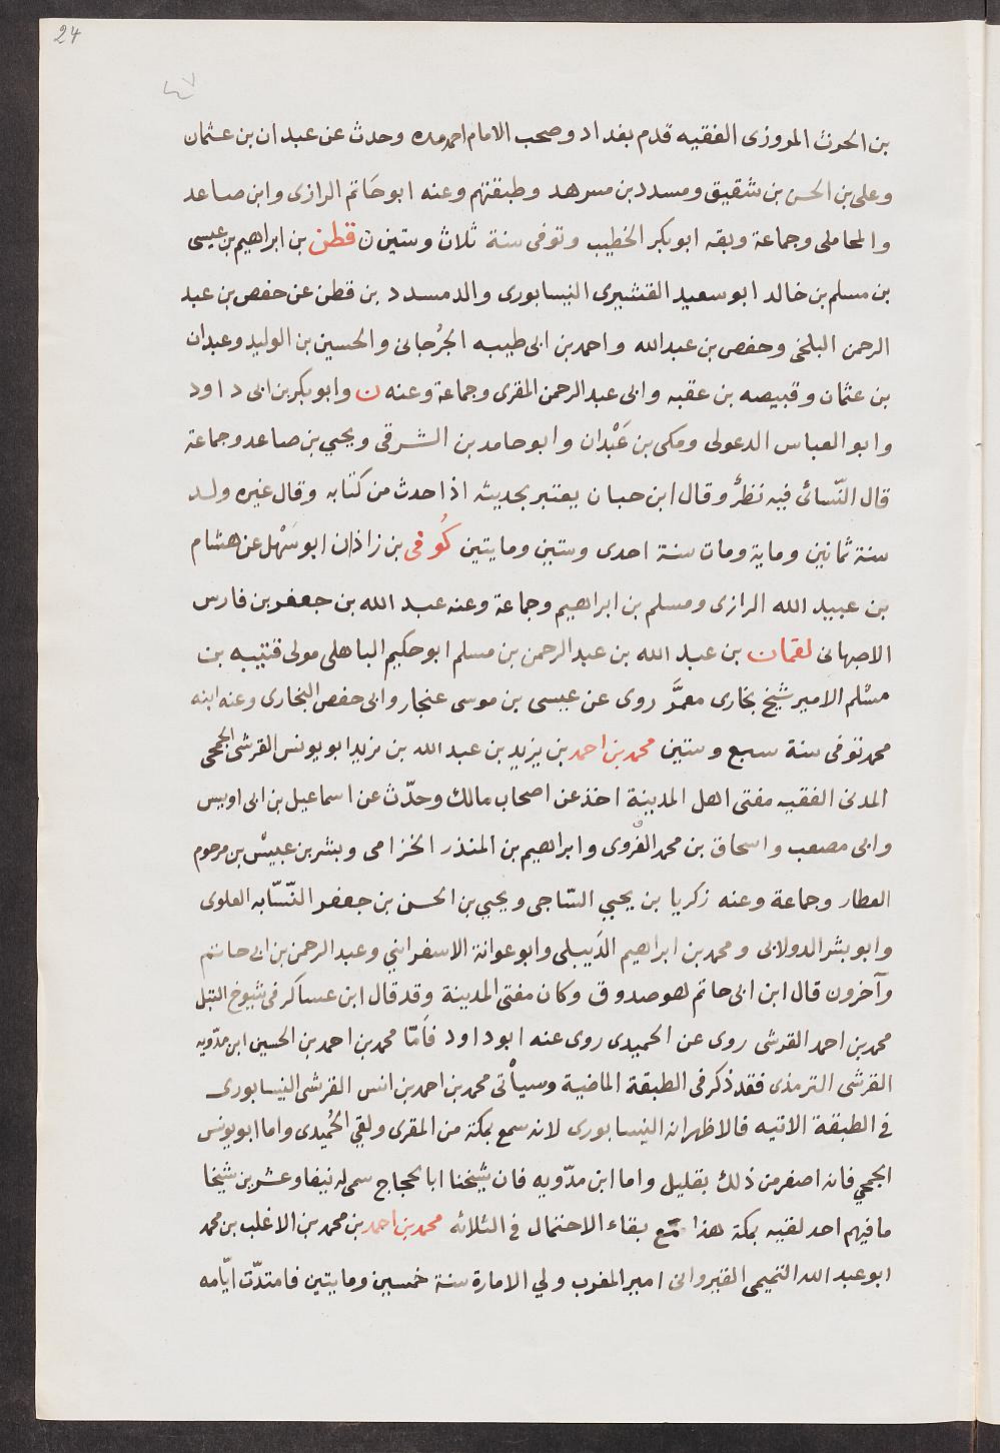 24
٤٧
بن الحرث المروزى الفقيه قدم بغداد وصحب الامام احمد مده وحدث عن عبدان بن عثمان
وعلى بن الحسن بن شقيق ومسدد بن مسرهد وطبقتهم وعنه ابو حَاتم الرازى وابن صاعد
والمحاملى وجماعة وثقه ابو بكر الخطيب وتوفى سنة ثلاث وستين ن قطن بن ابراهيم بن عيسى
بن مسلم بن خالد ابو سعيد القشيرى النيسابورى والد مسدد بن قطن عن حفص بن عبد
الرحمن البلخى وحفص بن عبدالله واحمد بن ابى طيبه الجُرجانى والحسين بن الوليد وعبدان
بن عثمان وقبيصه بن عقبه وابى عبد الرحمن المقرى وجماعة وعنه ن وابو بكر بن ابى داود
وابو العباس الدعولى ومكى بن عَبْدان وابو حامد بن الشرقى ويحيي بن صاعد وجماعة
قال النّسائى فيه نظرٌ وقال ابن حبان يعتبر بحديثه اذا حدث من كتابه وقال غيره ولد
سنة ثمانين وماية ومات سنة احدى وستين ومايتين كُوفى بن زاذان ابو سَهْل عن هشام
بن عبيد الله الرازى ومسلم بن ابراهيم وجماعة وعنه عبد الله بن جعفر بن فارس
الاصبهانى لقمان بن عبد الله بن عبد الرحمن بن مسلم ابو حكيم الباهلى مولى قتيبه بن
مسْلم الامير شيخ بخارى معمَّر روى عن عيسى بن موسى عنجار وابى حفص البخارى وعنه ابنه
محمد توفى سنة سبع وستين محمد بن احمد بن يزيد بن عبد الله بن يزيد ابو يونس القرشى الجمحى
المدنى الفقيه مفتى اهل المدينة اخذ عن اصحاب مالك وحدّث عن اسماعيل بن ابى اويس
وابى مصعب واسحاق بن محمد الفُروى وابراهيم بن المنذر الخزامى وبشر بن عبيسْ بن مرحوم
العطار وجماعة وعنه زكريا بن يحيي السّاجى ويحيي بن الحسن بن جعفر النّسّابه العلوى
وابو بشر الدولابى ومحمد بن ابراهيم الدَيبلى وابو عوانة الاسفراينى وعبد الرحمن بن ابى حاتم
وآخرون قال ابن ابى حاتم هو صدوق وكان مفتى المدينة وقد قال ابن عساكر فى شيوخ النبل
محمد بن احمد القرشى روى عن الحميدى روى عنه ابو داود فاَمّا محمد بن احمد بن الحسين ابن مدّويه
القرشى الترمذى فقد ذكر فى الطبقة الماضية وسيأْتى محمد بن احمد بن انس القرشى النيسابورى
فى الطبقة الاتيه فالاظهر انه النيسابورى لانه سمع بمكة من المقرى ولقي الحُميدى واما ابو يونس
الجمحي فانه اصغر من ذلك بقليل واما ابن مدّويه فان شيخنا ابا الحجاج سمى له نيفا وعشرين شيخا
ما فيهم احد لقيه بمكة هذا مَع بقاء الاحتمال فى الثلاثه محمد بن احمد بن محمد بن الاغلب بن محمد
ابو عبد الله التميمى القيروانى امير المغرب ولي الامارة سنة خمسين ومايتين فامتدّت ايّامه